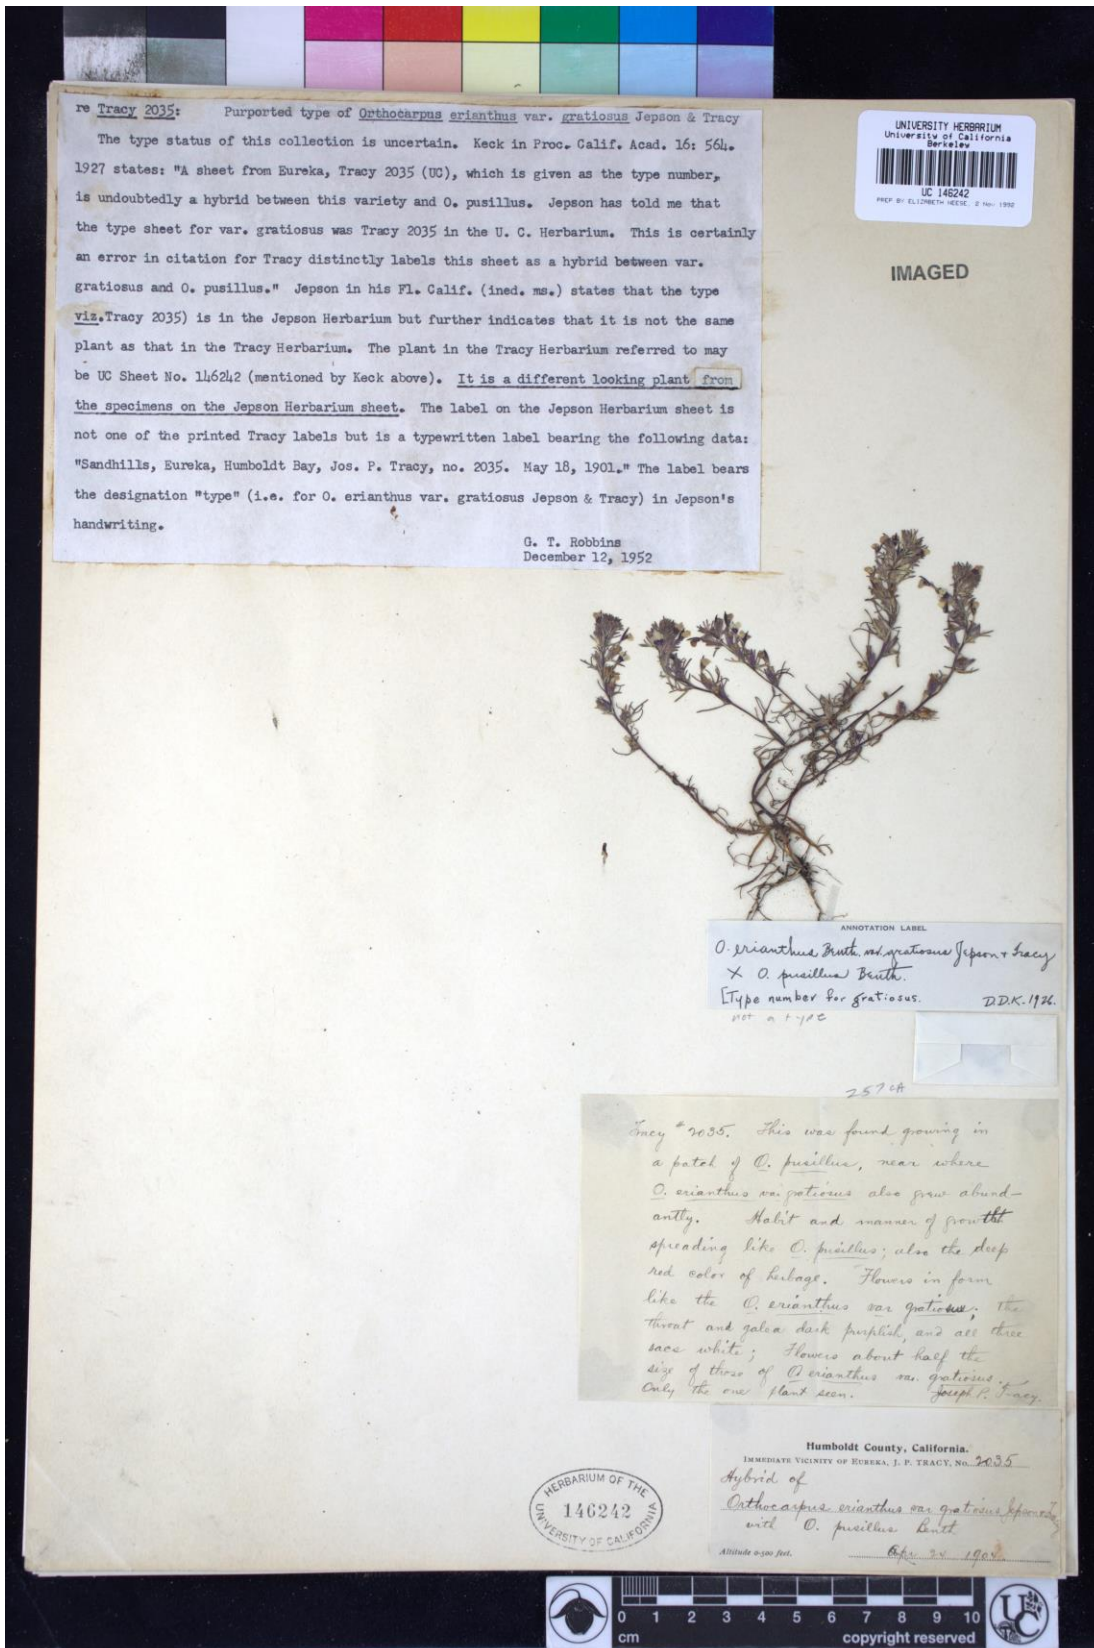 re Tracy 2035: Purported type of Orthocarpus erianthus var. gratiosus Jepson & Tracy
The type status of this collection is uncertain. Keck in Proc. Calif. Acad. 16: 564.
1927 states: "A sheet from Eureka, Tracy 2035 (UC), which is given as the type number,
is undoubtedly a hybrid between this variety and O. pusillus. Jepson has told me that
the type sheet for var. gratiosus was Tracy 2035 in the U. C. Herbarium. This is certainly
an error in citation for Tracy distinctly labels this sheet as a hybrid between var.
gratiosus and O. pusillus." Jepson in his Fl. Calif. (ined. ms.) states that the type
viz.Tracy 2035) is in the Jepson Herbarium but further indicates that it is not the same
plant as that in the Tracy Herbarium. The plant in the Tracy Herbarium referred to may
be UC Sheet No. 146242 (mentioned by Keck above). It is a different looking plant from
the specimens on the Jepson Herbarium sheet. The label on the Jepson Herbarium sheet is
not one of the printed Tracy labels but is a typewritten label bearing the following data:
"Sandhills, Eureka, Humboldt Bay, Jos. P. Tracy, no. 2035. May 18, 1901." The label bears
the designation "type" (i.e. for O. erianthus var. gratiosus Jepson & Tracy) in Jepson's
handwriting.
G. T. Robbins
December 12, 1952
UNIVERSITY HERBARIUM
University of California
Berkeley
UC 146242
PREP BY ELIZABETH NEESE, 2 Nov 1992
IMAGED
ANNOTATION LABEL
O. erianthus Benth. var. gratiosus Jepson + Tracy
X O. pusillus Benth.
[Type number for gratiosus. D.D.K. - 1926.
not a type
Tracy # 2035. This was found growing in
a patch of O. pusillus, near where
O. erianthus var gratiosus also grew abund-
antly. Habit and manner of growth
spreading like O. pusillus; also the deep
red color of herbage. Flowers in form
like the O. erianthus var gratiosus; the
throat and galea dark purplish, and all three
sacs white; Flowers about half the
size of those of O erianthus var. gratiosus.
Only the one plant seen. Joseph P. Tracy.
Humboldt County, California.
IMMEDIATE VICINITY OF EUREKA, J. P. TRACY, No. 2035
Hybrid of
Orthocarpus erianthus var gratiosus Jepson &
with O. pusillus Benth
Altitude 0-500 feet. Apr 24 190
HERBARIUM OF THE
146242
UNIVERSITY OF CALIFORNIA
0 1 2 3 4 5 6 7 8 9 10
cm copyright reserved
UC